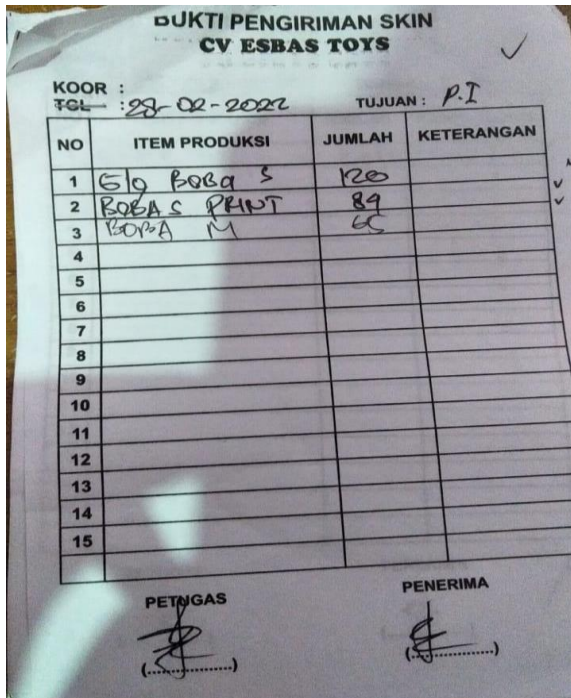 BUKTI PENGIRIMAN SKIN
CV ESBAS TOYS
KOOR :
TGL : 28-02-2022 TUJUAN : P.I
NO ITEM PRODUKSI JUMLAH KETERANGAN
1 G/Q BOBA S 120
2 BOBA S PRINT 89
3 BOBA M
4
5
6
7
8
9
10
11
12
13
14
15
PETUGAS PENERIMA
(..................) (..................)